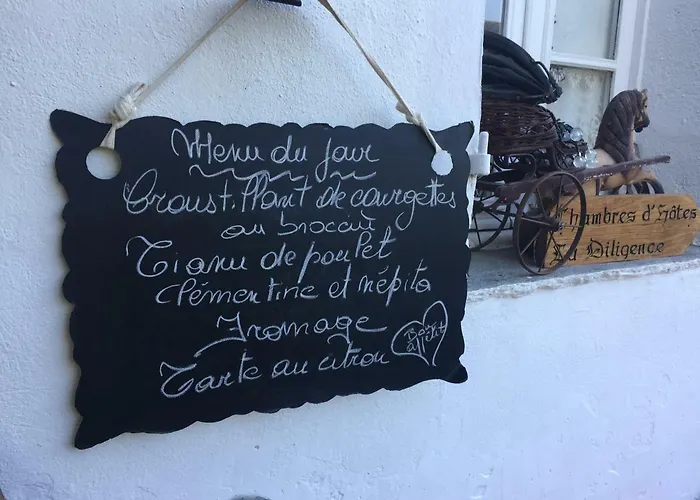 Menu du jour
Croustillant de courgettes
au brocciu
Tianu de poulet
Clémentine et népita
Fromage
Tarte au citron
Bon
appétit
Chambres d'Hôtes
La Diligence